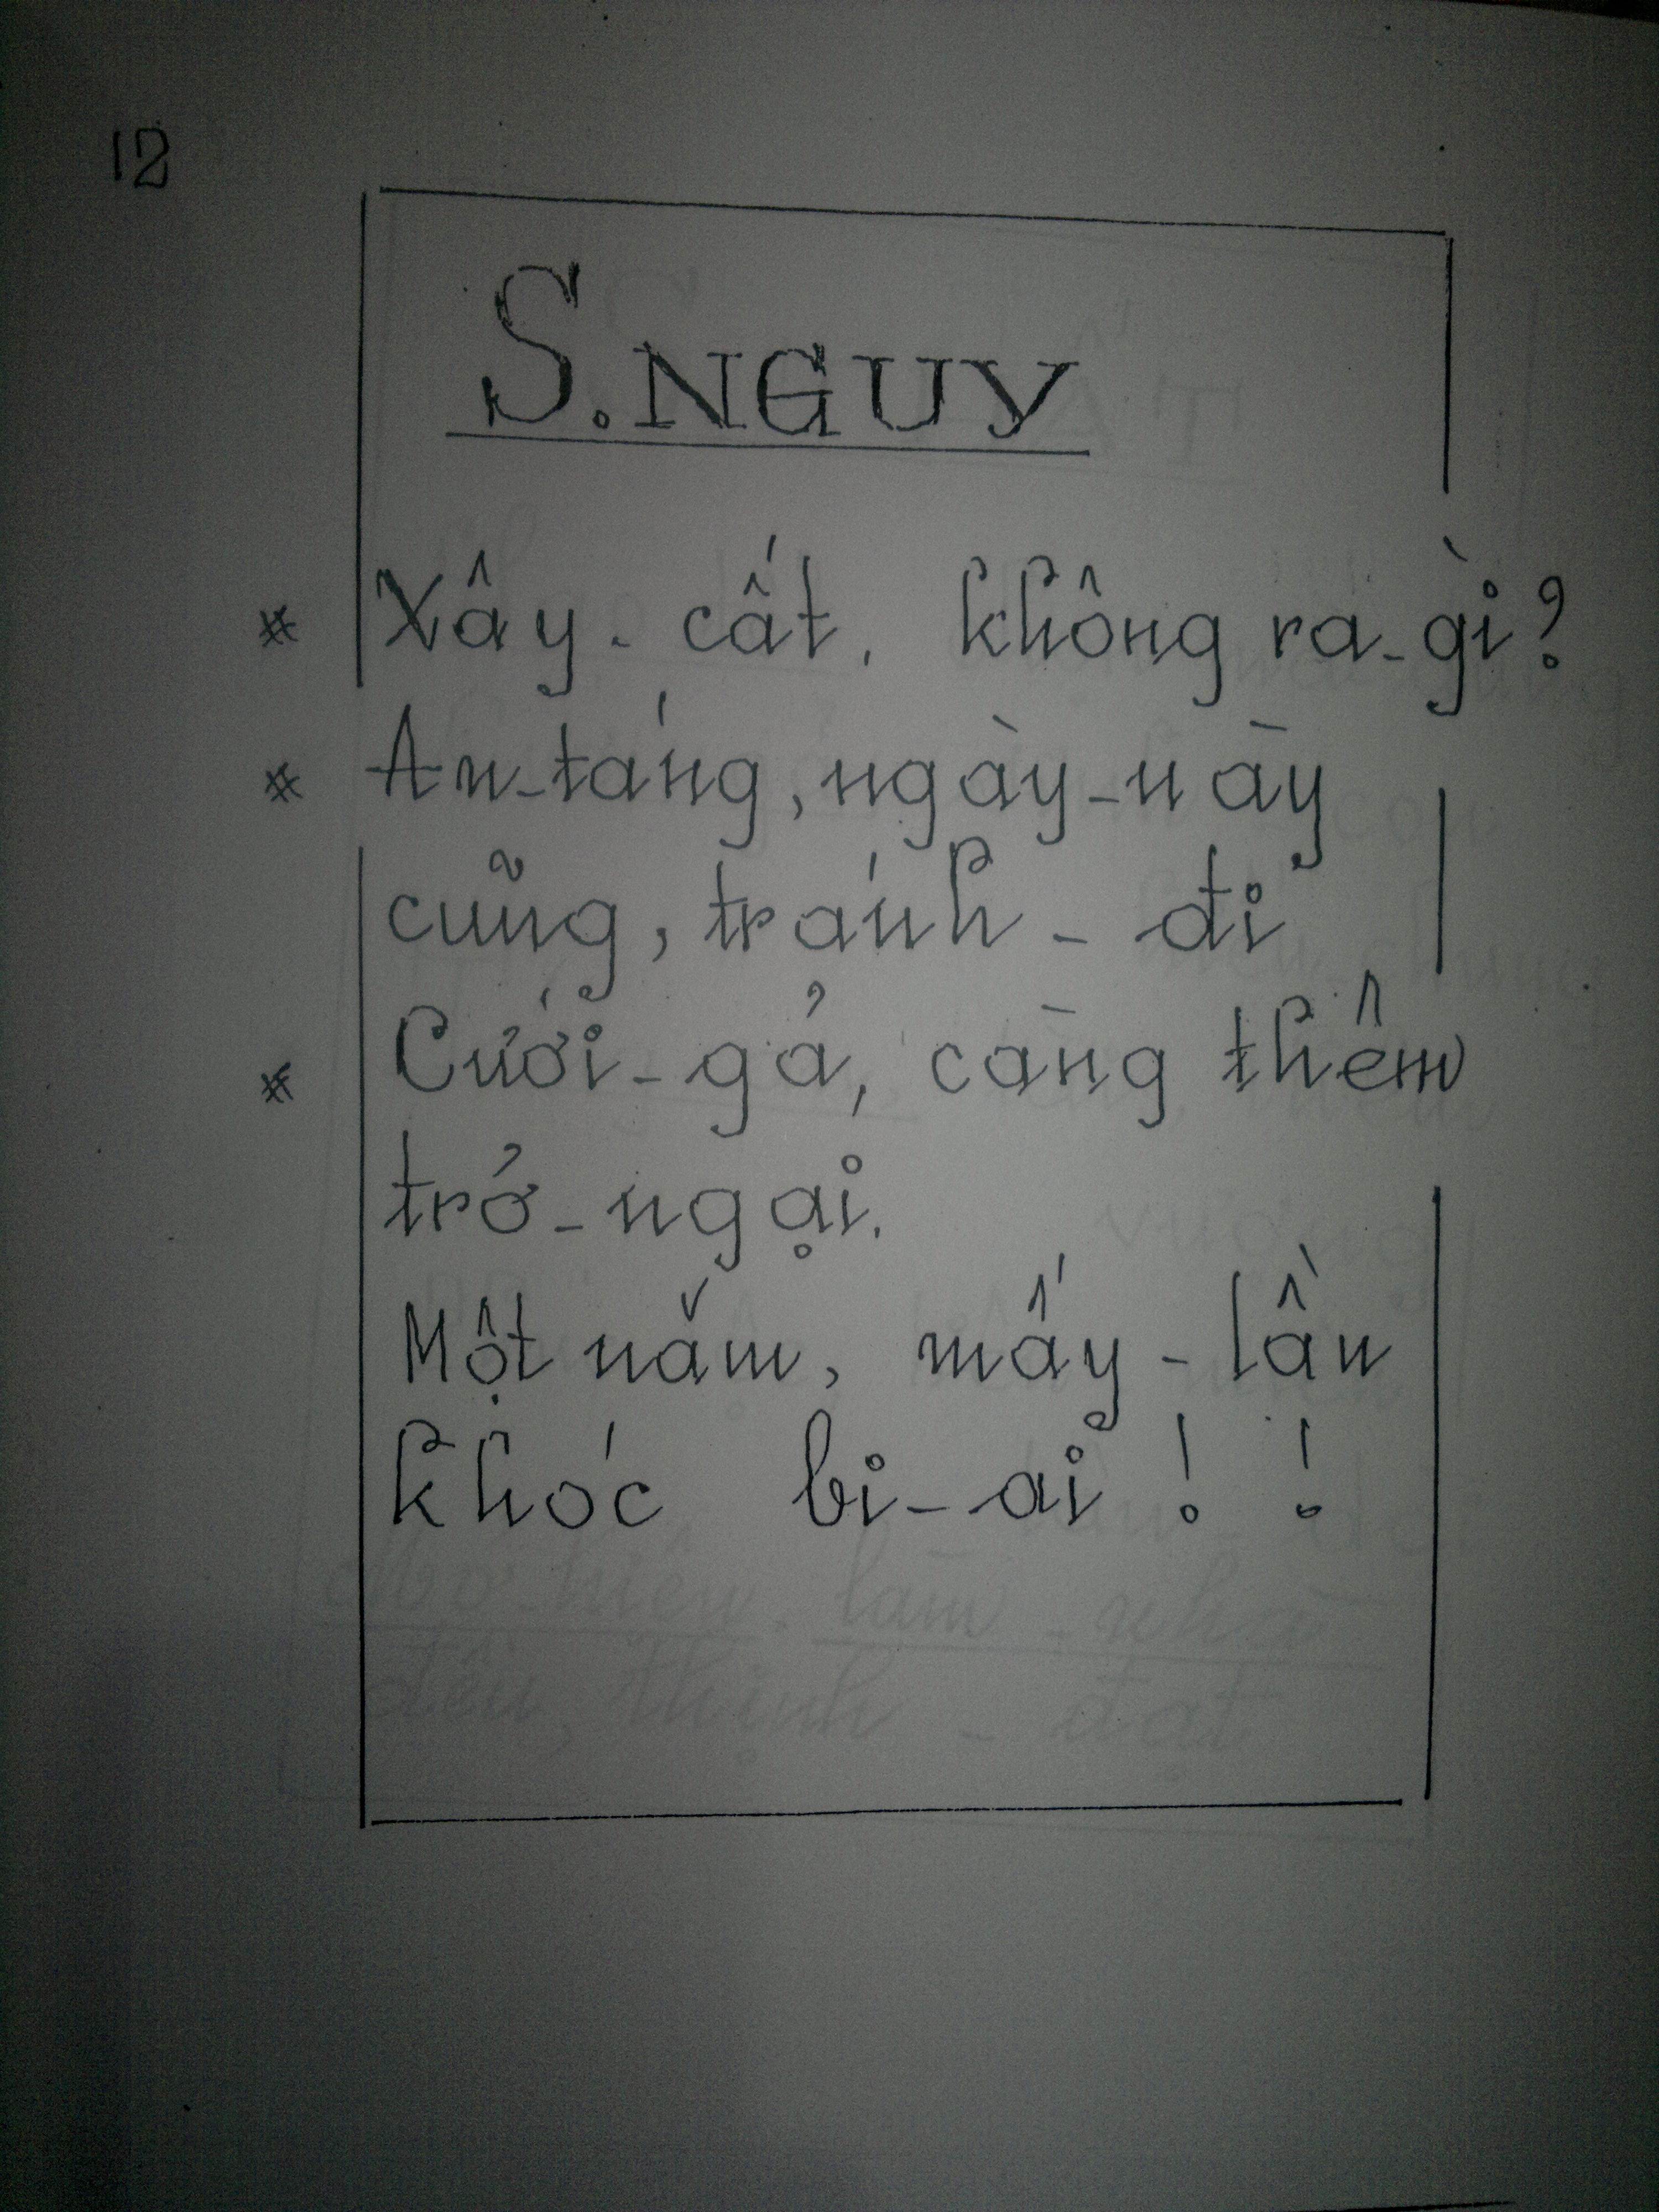 12
S. NGUY
* Xây - cất, không ra - gì?
* An - táng, ngày - này
cũng, tránh - đi
* Cưới - gả, càng thêm
trở - ngại.
Một năm, mấy - lần
khóc bi - ai ! !